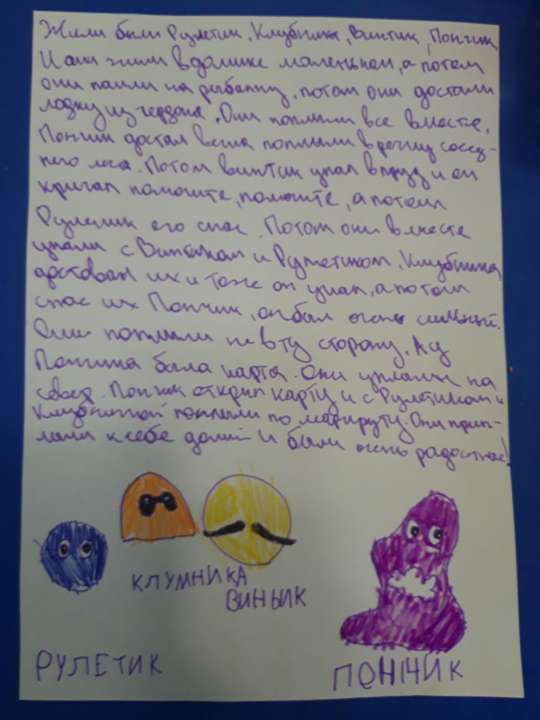 Жили были Рулетик, Клубника, Винтик, Пончик
И они жили в домике маленьком, а потом
они пошли на рыбалку, потом они достали
лодку из чердака. Они поплыли все вместе,
Пончик достал весла поплыли в речку сосед-
него леса. Потом винтик упал в пруд и он
кричал помогите, помогите, а потом
Рулетик его спас. Потом они вместе
упали с Винтиком и Рулетиком. Клубника
доставал их и тоже он упал, а потом
спас их Пончик, он был очень сильный.
Они поплыли не в ту сторону. А у
Пончика была карта. Они уплыли на
Пончик открыл карту и с Рулетиком и
Клубникой поплыли по маршруту. Они прип-
лыли к себе домой и были очень радостные!
КЛУМНИКА
ВИНЬИК
РУЛЕТИК
ПОНЧИК